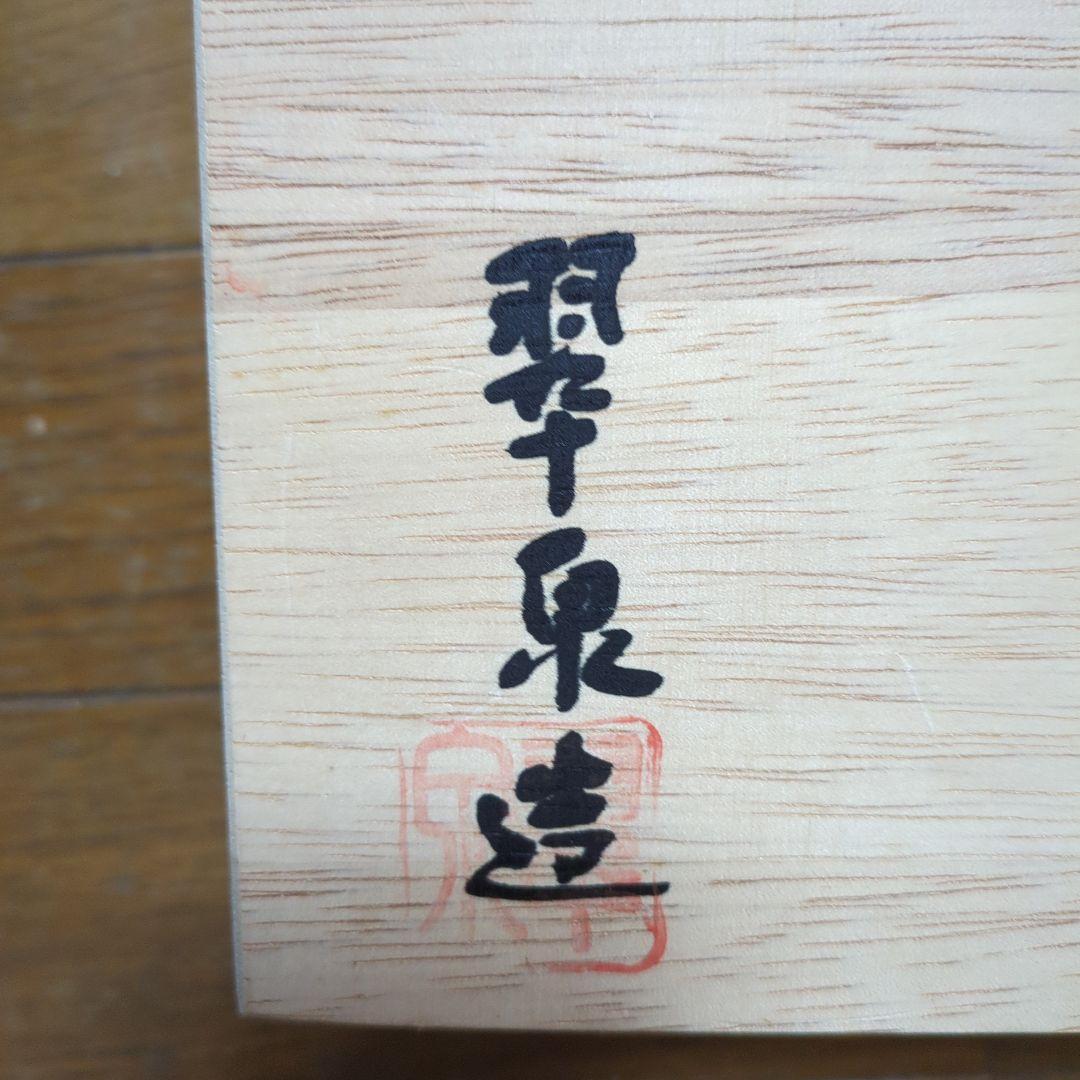 翠泉造